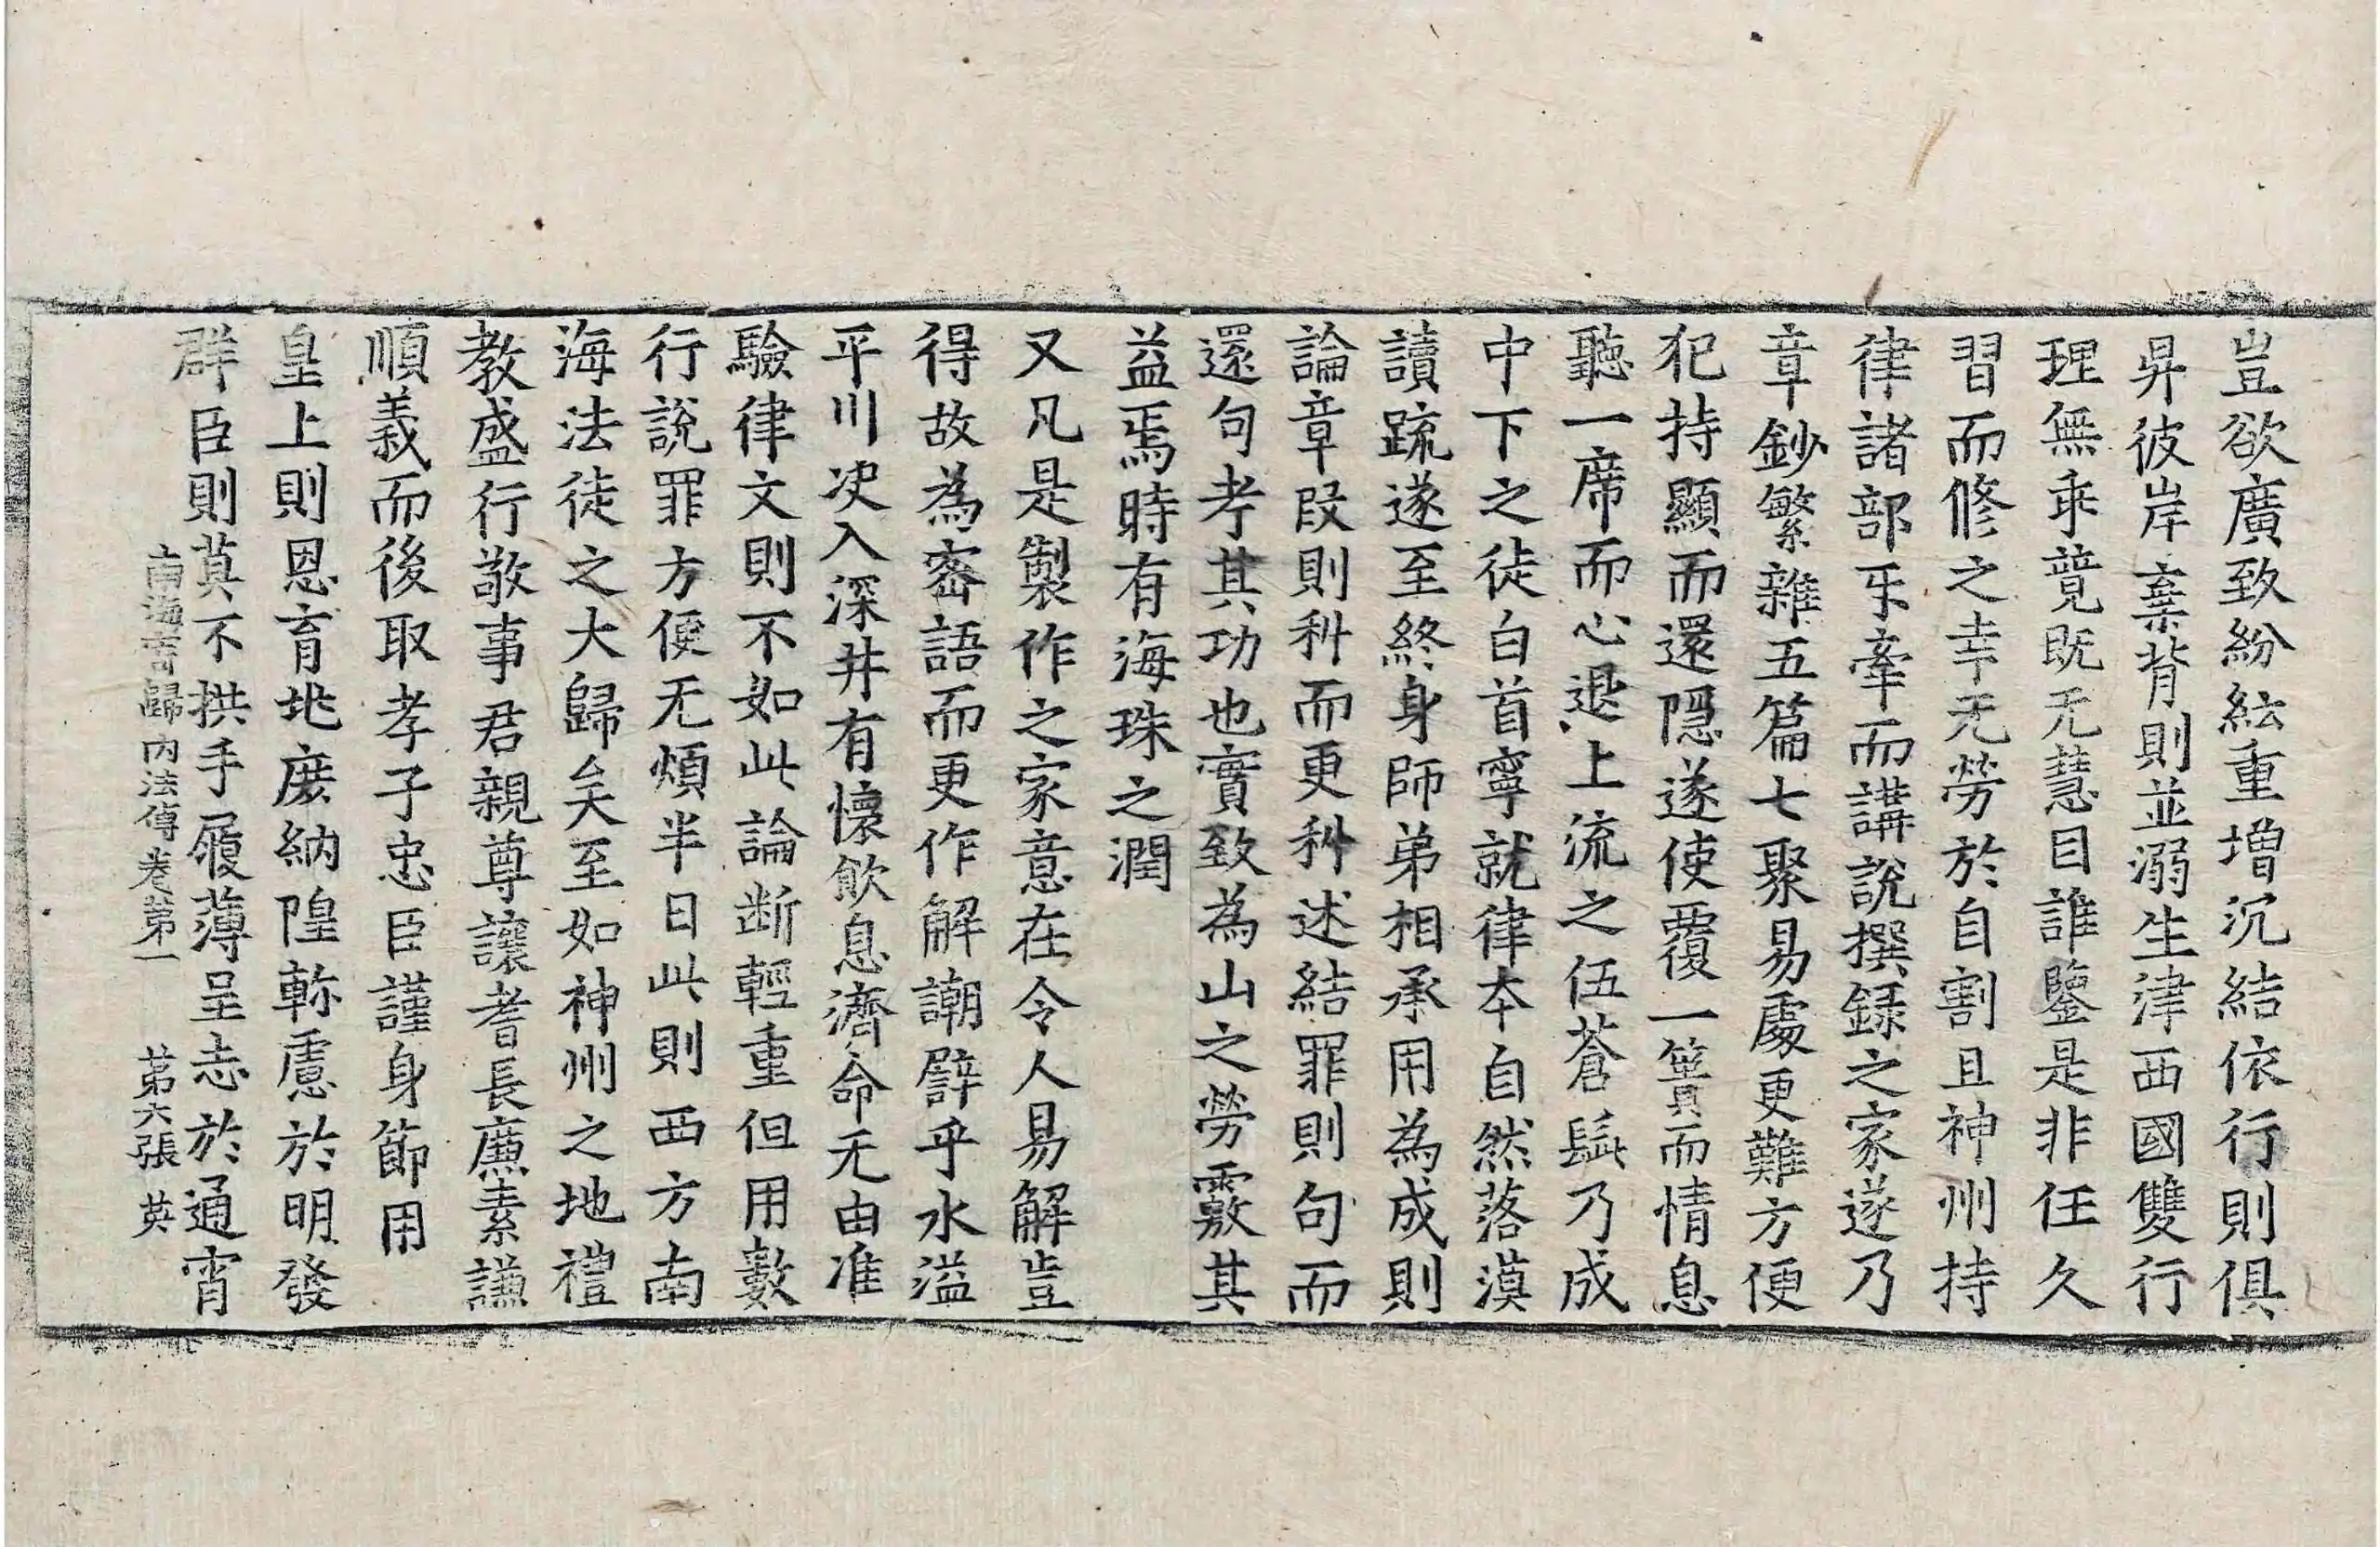 豈欲廣致紛紜重增沉結依行則俱
昇彼岸棄背則並溺生津西國雙行
理無乖竟既无慧目誰鑒是非任久
習而修之幸无勞於自割且神州持
律諸部㸦牽而講說撰録之家遂乃
章鈔繁雜五篇七聚易處更難方便
犯持顯而還隱遂使覆一簣而情息
聽一席而心退上流之伍蒼髭乃成
中下之徒白首寧就律夲自然落漠
讀疏遂至終身師弟相承用為成則
論章段則科而更科述結罪則句而
還句考其功也實致為山之勞覈其
益焉時有海珠之潤
又凡是製作之家意在令人易解豈
得故為密語而更作解謿譬乎水溢
平川決入深井有懷飲息濟命无由准
驗律文則不如此論断輕重但用數
行說罪方便无煩半日此則西方南
海法徒之大歸矣至如神州之地禮
教盛行敬事君親尊讓耆長廉素謙
順義而後取孝子忠臣謹身節用
皇上則恩育兆庶納隍軫慮於明發
群臣則莫不拱手履薄呈志於通宵
南海寄歸內法傳卷第一 第六張 英